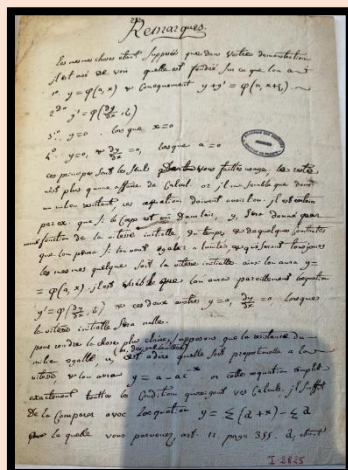 Remarques.
Les mêmes choses étant supposées que dans votre démonstration
il est aisé de voir quelle est fondée sur ce que l'on a
1°. y = φ(a, x) & conséquemment y + y' = φ(a, x+t)
2do y' = φ(dy/dx, t)
3°. y = 0 lorsque x = 0
4°. y = 0, & dy/dx = 0, lorsque a = 0
ces principes sont les seuls dont vous faites usage, le reste
n'est plus qu'une affaire de Calcul. or il me semble que dans
un milieu résistant ces équations doivent avoir lieu. il est certain
par ex que si le Corps est d'un lieu, y, sera donné par
une fonction de la vitesse initiale du temps, & de quelques constantes
que l'on peut égaler à l'unité et qui seront toujours
les mêmes quelque soit la vitesse initiale ainsi l'on aura y =
= φ(a, x) il est visible que l'on aura pareillement l'équation
y' = φ(dy/dx, t) & ces deux autres y = 0, dy/dx = 0 lorsque
la vitesse initiale sera nulle.
pour rendre la chose plus claire, supposons que la résistance du
milieu égale, u, c'est à dire quelle soit proportionnelle à la
vitesse, & l'on aura y = a - ac^-x or cette équation remplit
exactement toutes les Conditions qu'exigent vos Calculs. il suffit
de la Comparer avec l'équation y = ξ(a + x) - ξa
à laquelle vous parvenez art. 11, page 355. a, étant
I-2825